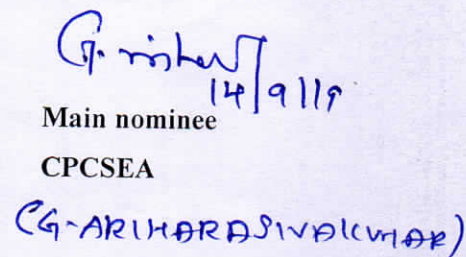 14/9/19
Main nominee
CPCSEA
(G-ARIHARASIVAKUMAR)